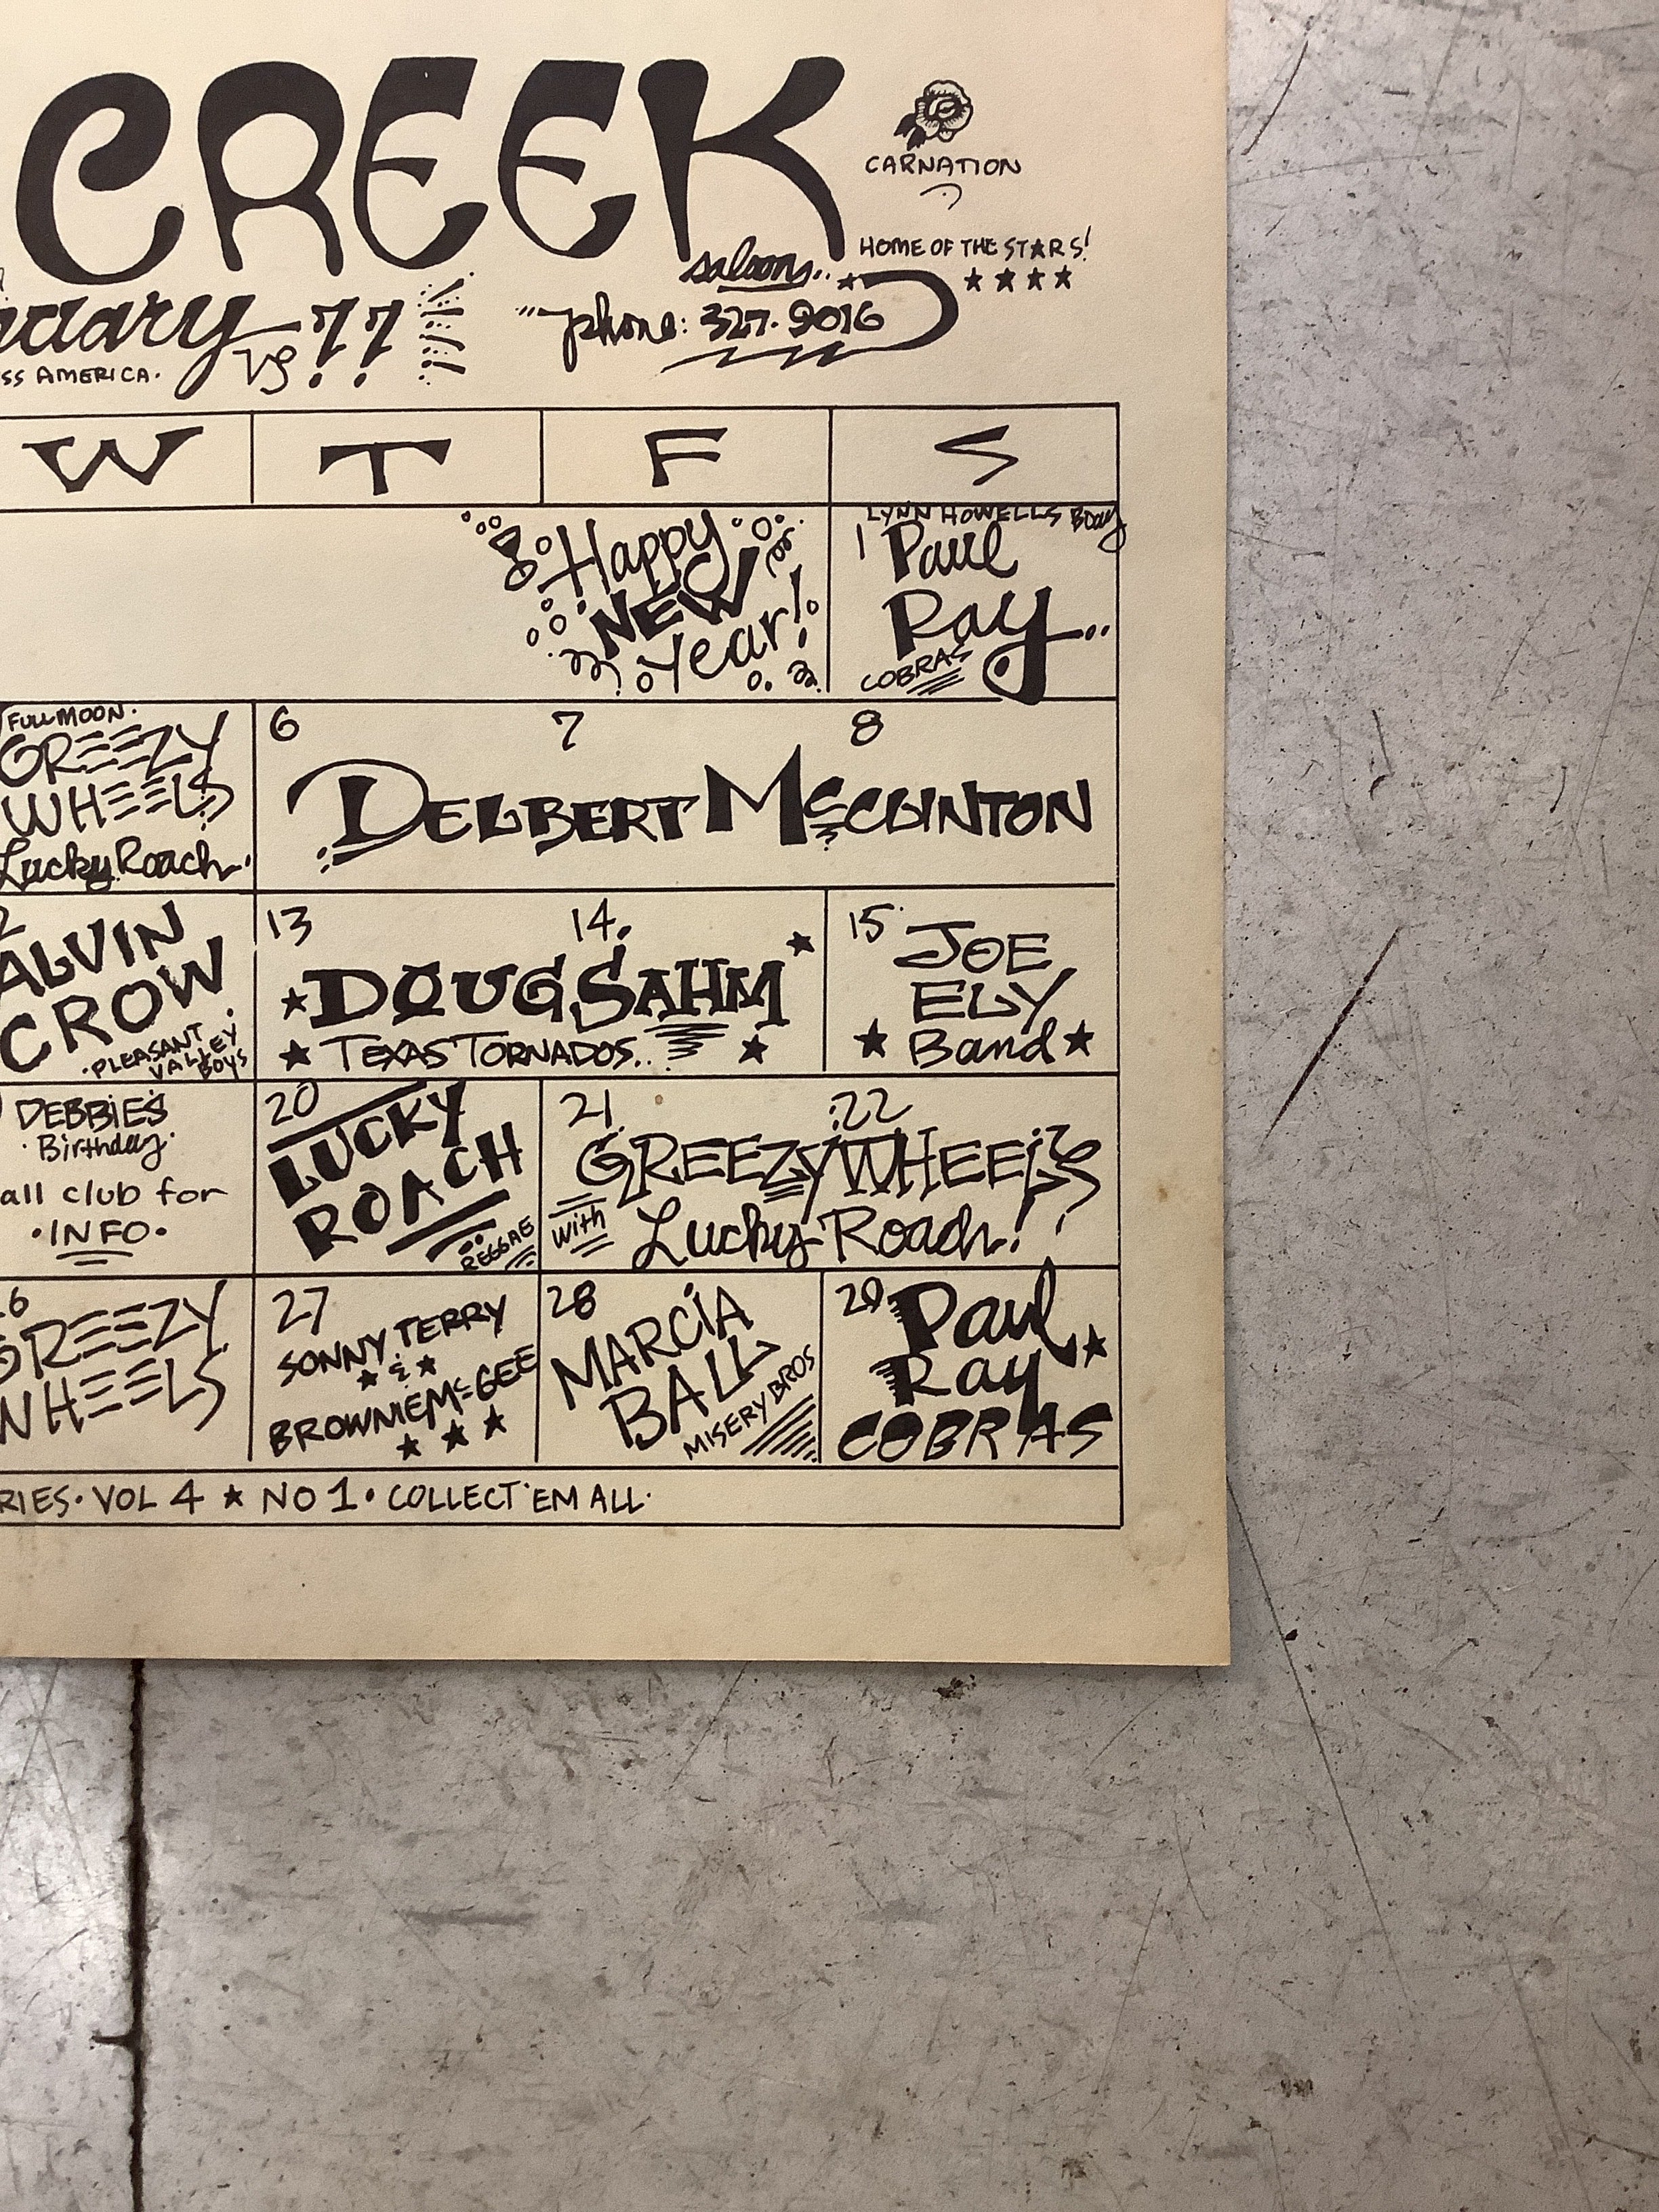 CREEK
CARNATION
saloon..
HOME OF THE STARS!
phone: 327·9016
'77!
SS AMERICA.
W T F S
Happy
NEW
Year!
LYNN HOWELLS BDay
1 Paul
Ray..
COBRAS
FULL MOON.
GREEZY
WHEELS
Lucky Roach
6 7 8
DELBERT McCLINTON
ALVIN
CROW
PLEASANT
VALLEY
BOYS
13 14.
DOUG SAHM
TEXAS TORNADOS..
15. JOE
ELY
Band
DEBBIE'S
Birthday
all club for
INFO
20
LUCKY
ROACH
REGGAE
21 22
GREEZY WHEELS
with Lucky Roach!
6
GREEZY
WHEELS
27
SONNY TERRY
&
BROWNIE McGEE
28
MARCIA
BALL
MISERY BROS
29 Paul
Ray
COBRAS
RIES · VOL 4 ★ NO 1 · COLLECT 'EM ALL ·